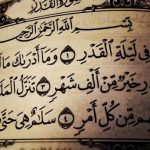 سُورَةُ الْقَدْرِ
بِسْمِ اللَّهِ الرَّحْمَٰنِ الرَّحِيمِ
فِي لَيْلَةِ الْقَدْرِ ١ وَمَا أَدْرَاكَ مَا
رِ خَيْرٌ مِّنْ أَلْفِ شَهْرٍ ٣ تَنَزَّلُ الْمَلَ
هِم مِّن كُلِّ أَمْرٍ ٤ سَلَامٌ هِيَ حَتَّىٰ